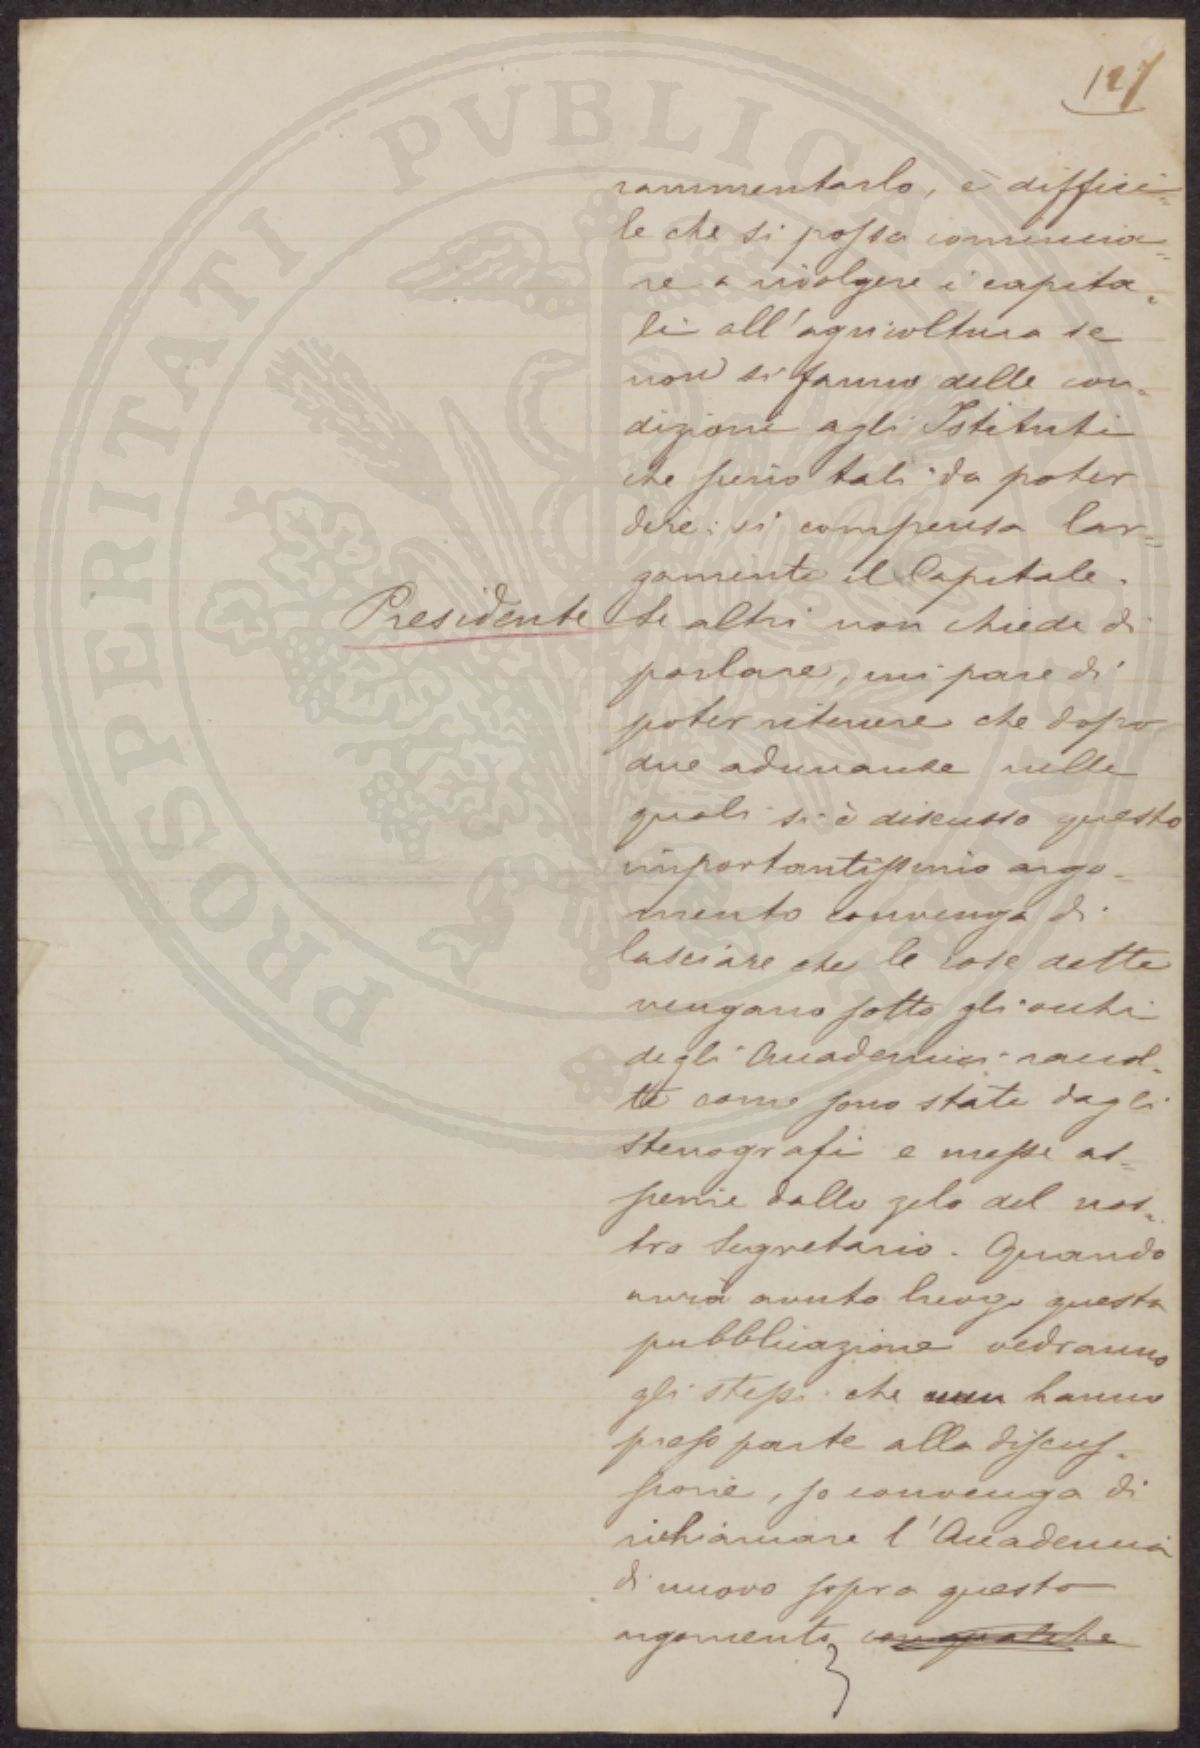 127
rammentarlo, è diffici=
le che si possa comincia=
re a rivolgere i capita=
li all'agricoltura se
non si fanno delle con=
dizioni agli Istituti
che sieno tali da poter
dire: si compensa lar=
gamente il Capitale.
Presidente Se altri non chiede di
parlare, mi pare di
poter ritenere che dopo
due adunanze nelle
quali si è discusso questo
importantissimo argo=
mento convenga di
lasciare che le cose dette
vengano sotto gli occhi
degli Accademici raccol=
te come sono state dagli
stenografi e messe as=
sieme dallo zelo del nos=
tro Segretario. Quando
avrà avuto luogo questa
pubblicazione vedranno
gli stessi che hanno
preso parte alla discus=
sione, se convenga di
richiamare l'Accademia
di nuovo sopra questo
argomento con qualche
PROSPERITATI PVBLICAE